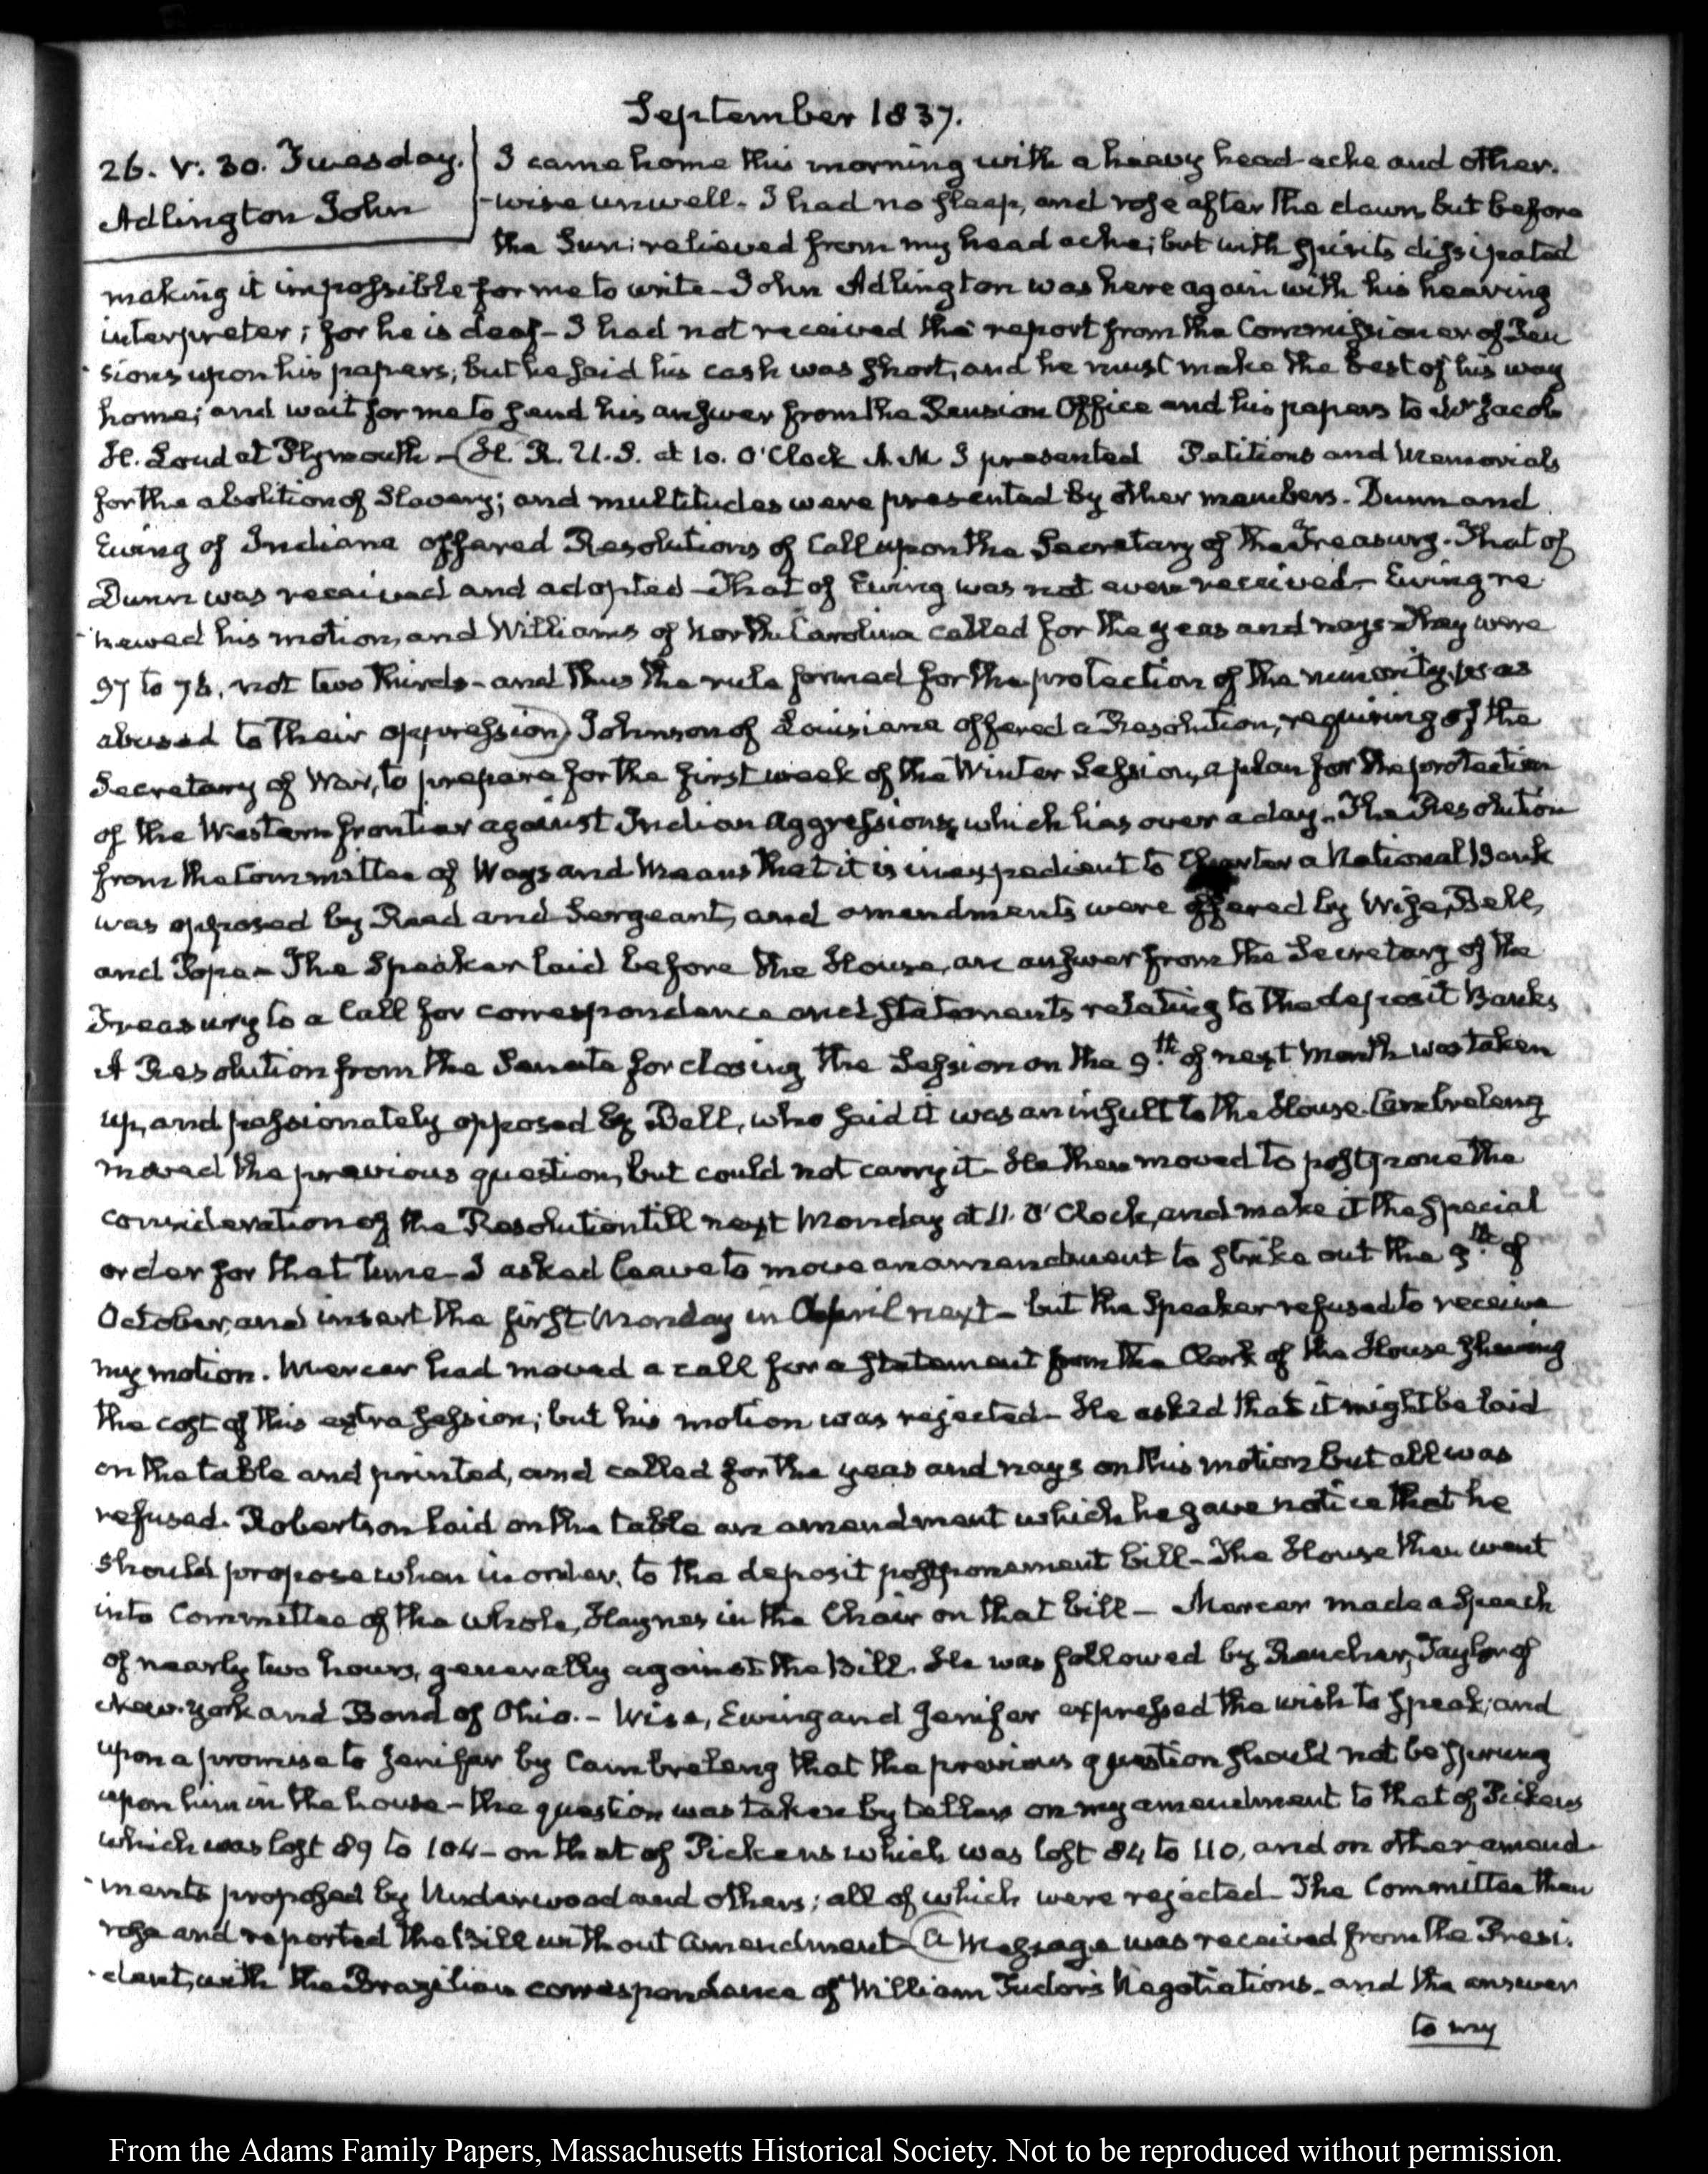 September 1837.
26. V: 30. Tuesday.
Adlington John
I came home this morning with a heavy head-ache and other-
-wise unwell. I had no sleep, and rose after the dawn, but before
the Sun: relieved from my head ache; but with spirits dissipated
making it impossible for me to write. John Adlington was here again with his hearing
interpreter; for he is deaf. I had not received the report from the Commissioner of Pen
sions upon his papers; but he said his cash was short, and he must make the best of his way
home; and wait for me to send his answer from the Pension Office and his papers to Mr Jacob
H. Loud at Plymouth. (H. R. U.S. at 10. O'Clock A.M. I presented Petitions and Memorials
for the abolition of Slavery; and multitudes were presented by other members. Dunn and
Ewing of Indiana offered Resolutions of Call upon the Secretary of the Treasury. That of
Dunn was received and adopted – That of Ewing was not even received. Ewing re
-newed his motion, and Williams of North Carolina called for the yeas and nays. They were
97 to 76, not two thirds – and thus the rule formed for the protection of the minority, is as
abused to their oppression) Johnson of Louisiana offered a Resolution, requiring of the
Secretary of War, to prepare for the first week of the Winter Session, a plan for the protection
of the Western frontier against Indian aggressions, which lies over a day. The Resolution
from the Committee of Ways and Means that it is inexpedient to Charter a National Bank
was opposed by Reed and Sergeant, and amendments were offered by Wise, Bell,
and Pope – The Speaker laid before the House, an answer from the Secretary of the
Treasury to a Call for correspondence and statements relating to the deposit Banks
A Resolution from the Senate for closing the Session on the 9th. of next Month was taken
up, and passionately opposed by Bell, who said it was an insult to the House. Cambreleng
moved the previous question, but could not carry it. He then moved to postpone the
consideration of the Resolution till next Monday at 11. O'Clock, and make it the special
order for that time – I asked leave to move an amendment to strike out the 9th. of
October, and insert the first Monday in April next – but the Speaker refused to receive
my motion. Mercer had moved a call for a statement from the Clerk of the House shewing
the cost of this extra session; but his motion was rejected – He asked that it might be laid
on the table and printed, and called for the yeas and nays on this motion but all was
refused. Robertson laid on the table an amendment which he gave notice that he
should propose when in order, to the deposit postponement bill – The House then went
into Committee of the whole, Haynes in the Chair on that bill – Mercer made a Speech
of nearly two hours, generally against the Bill. He was followed by Rencher, Taylor of
New-York and Bond of Ohio. – Wise, Ewing and Jenifer expressed the wish to speak; and
upon a promise to Jenifer by Cambreleng that the previous question should not be sprung
upon him in the house – the question was taken by tellers on my amendment to that of Pickens
which was lost 89 to 104 – on that of Pickens which was lost 84 to 110, and on other amend-
-ments proposed by Underwood and others; all of which were rejected. The Committee then
rose and reported the Bill without amendment. (A Message was received from the Presi-
-dent, with the Brazilian correspondence of William Tudor's Negotiations – and the answer
to my
From the Adams Family Papers, Massachusetts Historical Society. Not to be reproduced without permission.